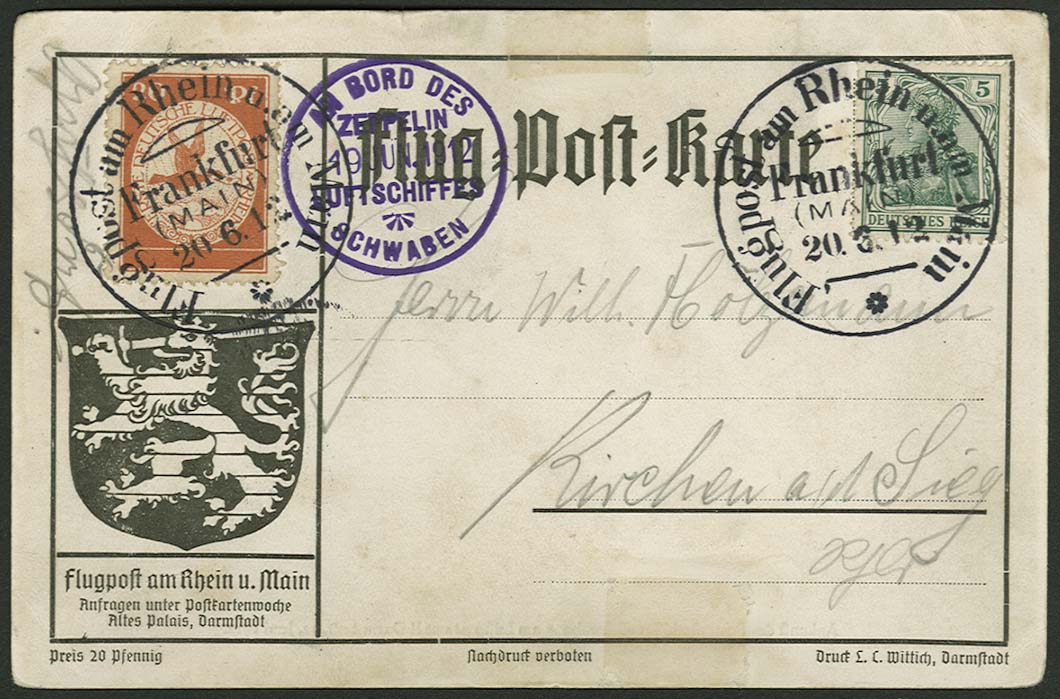 Flugpost am Rhein u. am Main
Frankfurt
(MAIN)
20.6.12
AN BORD DES
ZEPPELIN
19.JUN.1912
LUFTSCHIFFES
SCHWABEN
Flug-Post-Karte
Flugpost am Rhein u. am Main
Frankfurt
(MAIN)
20.6.12
5
DEUTSCHES REICH
Herrn Wilh. Holzmann
Kirchen a/d Sieg
Flugpost am Rhein u. Main
Anfragen unter Postkartenwoche
Altes Palais, Darmstadt
Preis 20 Pfennig
Nachdruck verboten
Druck L. C. Wittich, Darmstadt